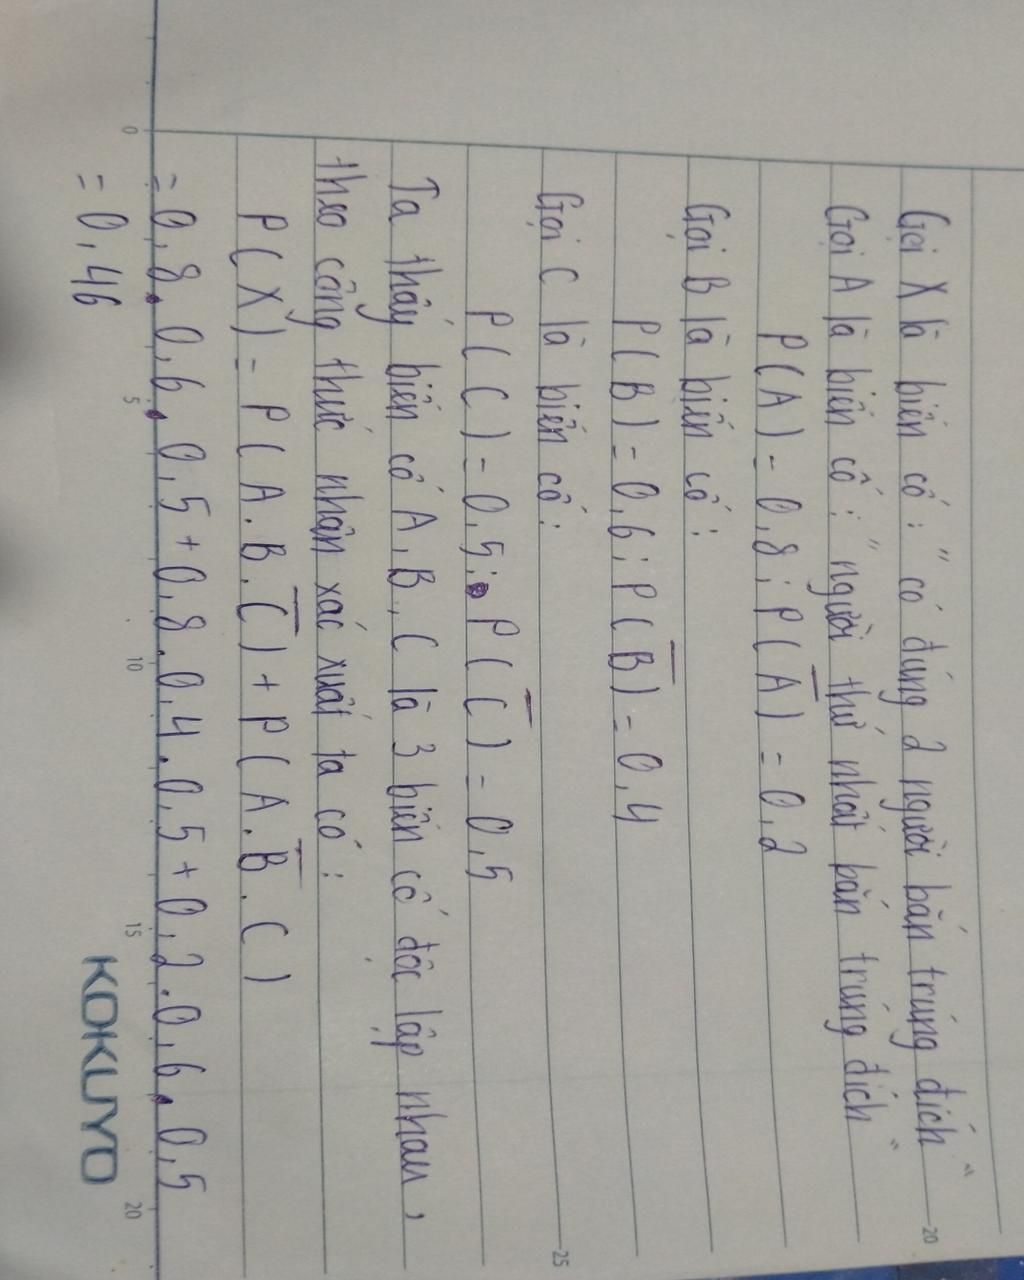 Gọi X là biến cố: "có đúng 2 người bắn trúng đích"
Gọi A là biến cố: "người thứ nhất bắn trúng đích"
20
P(A) = 0,8; P(A̅) = 0,2
Gọi B là biến cố:
P(B) = 0,6; P(B̅) = 0,4
Gọi C là biến cố:
25
P(C) = 0,5; P(C̅) = 0,5
Ta thấy biến cố A, B, C là 3 biến cố độc lập nhau,
theo công thức nhận xác xuất ta có:
P(X) = P(A.B.C̅) + P(A.B̅.C)
= 0,8.0,6.0,5 + 0,8.0,4.0,5 + 0,2.0,6.0,5
0 5 10 15 20
= 0,46
KOKUYO